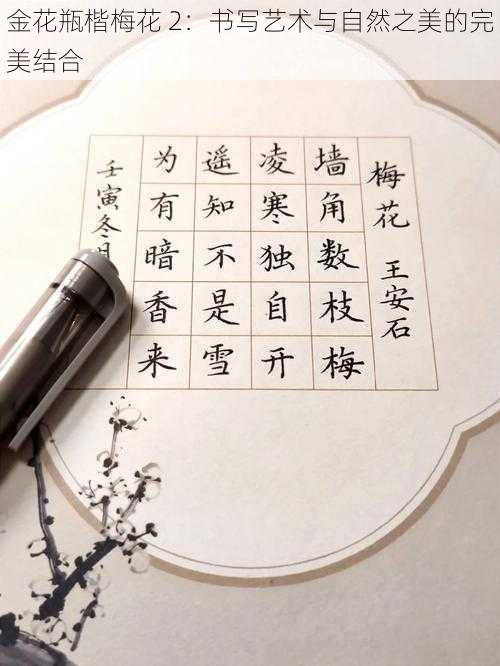 金花瓶楷梅花 2：书写艺术与自然之美的完
美结合
梅花 王安石
墙角数枝梅
凌寒独自开
遥知不是雪
为有暗香来
壬寅冬月